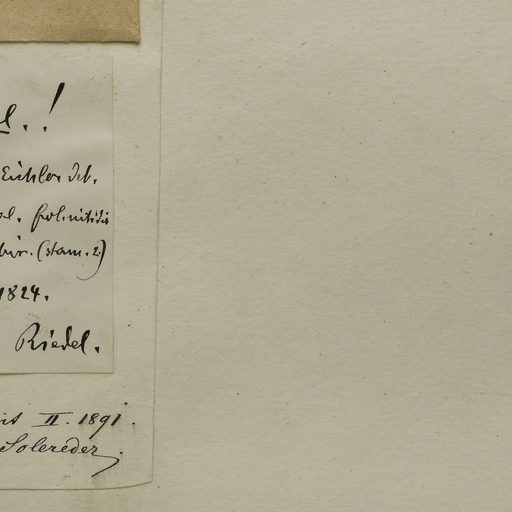 l.!
Eichler dt.
ol. fol. nitidis
bir. (stam. 2.)
1824.
Riedel.
it II. 1891.
Solereder.